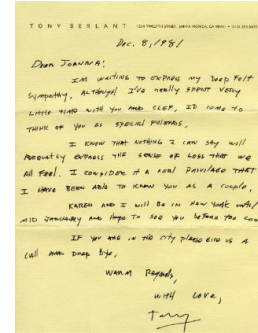 TONY BERLANT 1304 TWELFTH STREET, SANTA MONICA, CA •
Dec. 8, 1981
Dear JOANNA:
I'M WRITING TO EXPRESS MY DEEP FELT
SYMPATHY, ALTHOUGH I'VE REALLY SPENT VERY
LITTLE TIME WITH YOU AND CLEF, I'D COME TO
THINK OF YOU AS SPECIAL FRIENDS.
I KNOW THAT NOTHING I CAN SAY WILL
ADEQUATLY EXPRESS THE SENSE OF LOSS THAT WE
ALL FEEL. I CONSIDER IT A REAL PRIVILAGE THAT
I HAVE BEEN ABLE TO KNOW YOU AS A COUPLE.
KAREN AND I WILL BE IN NEW YORK UNTIL
MID JANUARY AND HOPE TO SEE YOU BEFORE TOO LONG
IF YOU ARE IN THE CITY PLEASE GIVE US A
CALL AND DROP BYE,
WARM REGARDS,
WITH LOVE,
Tony